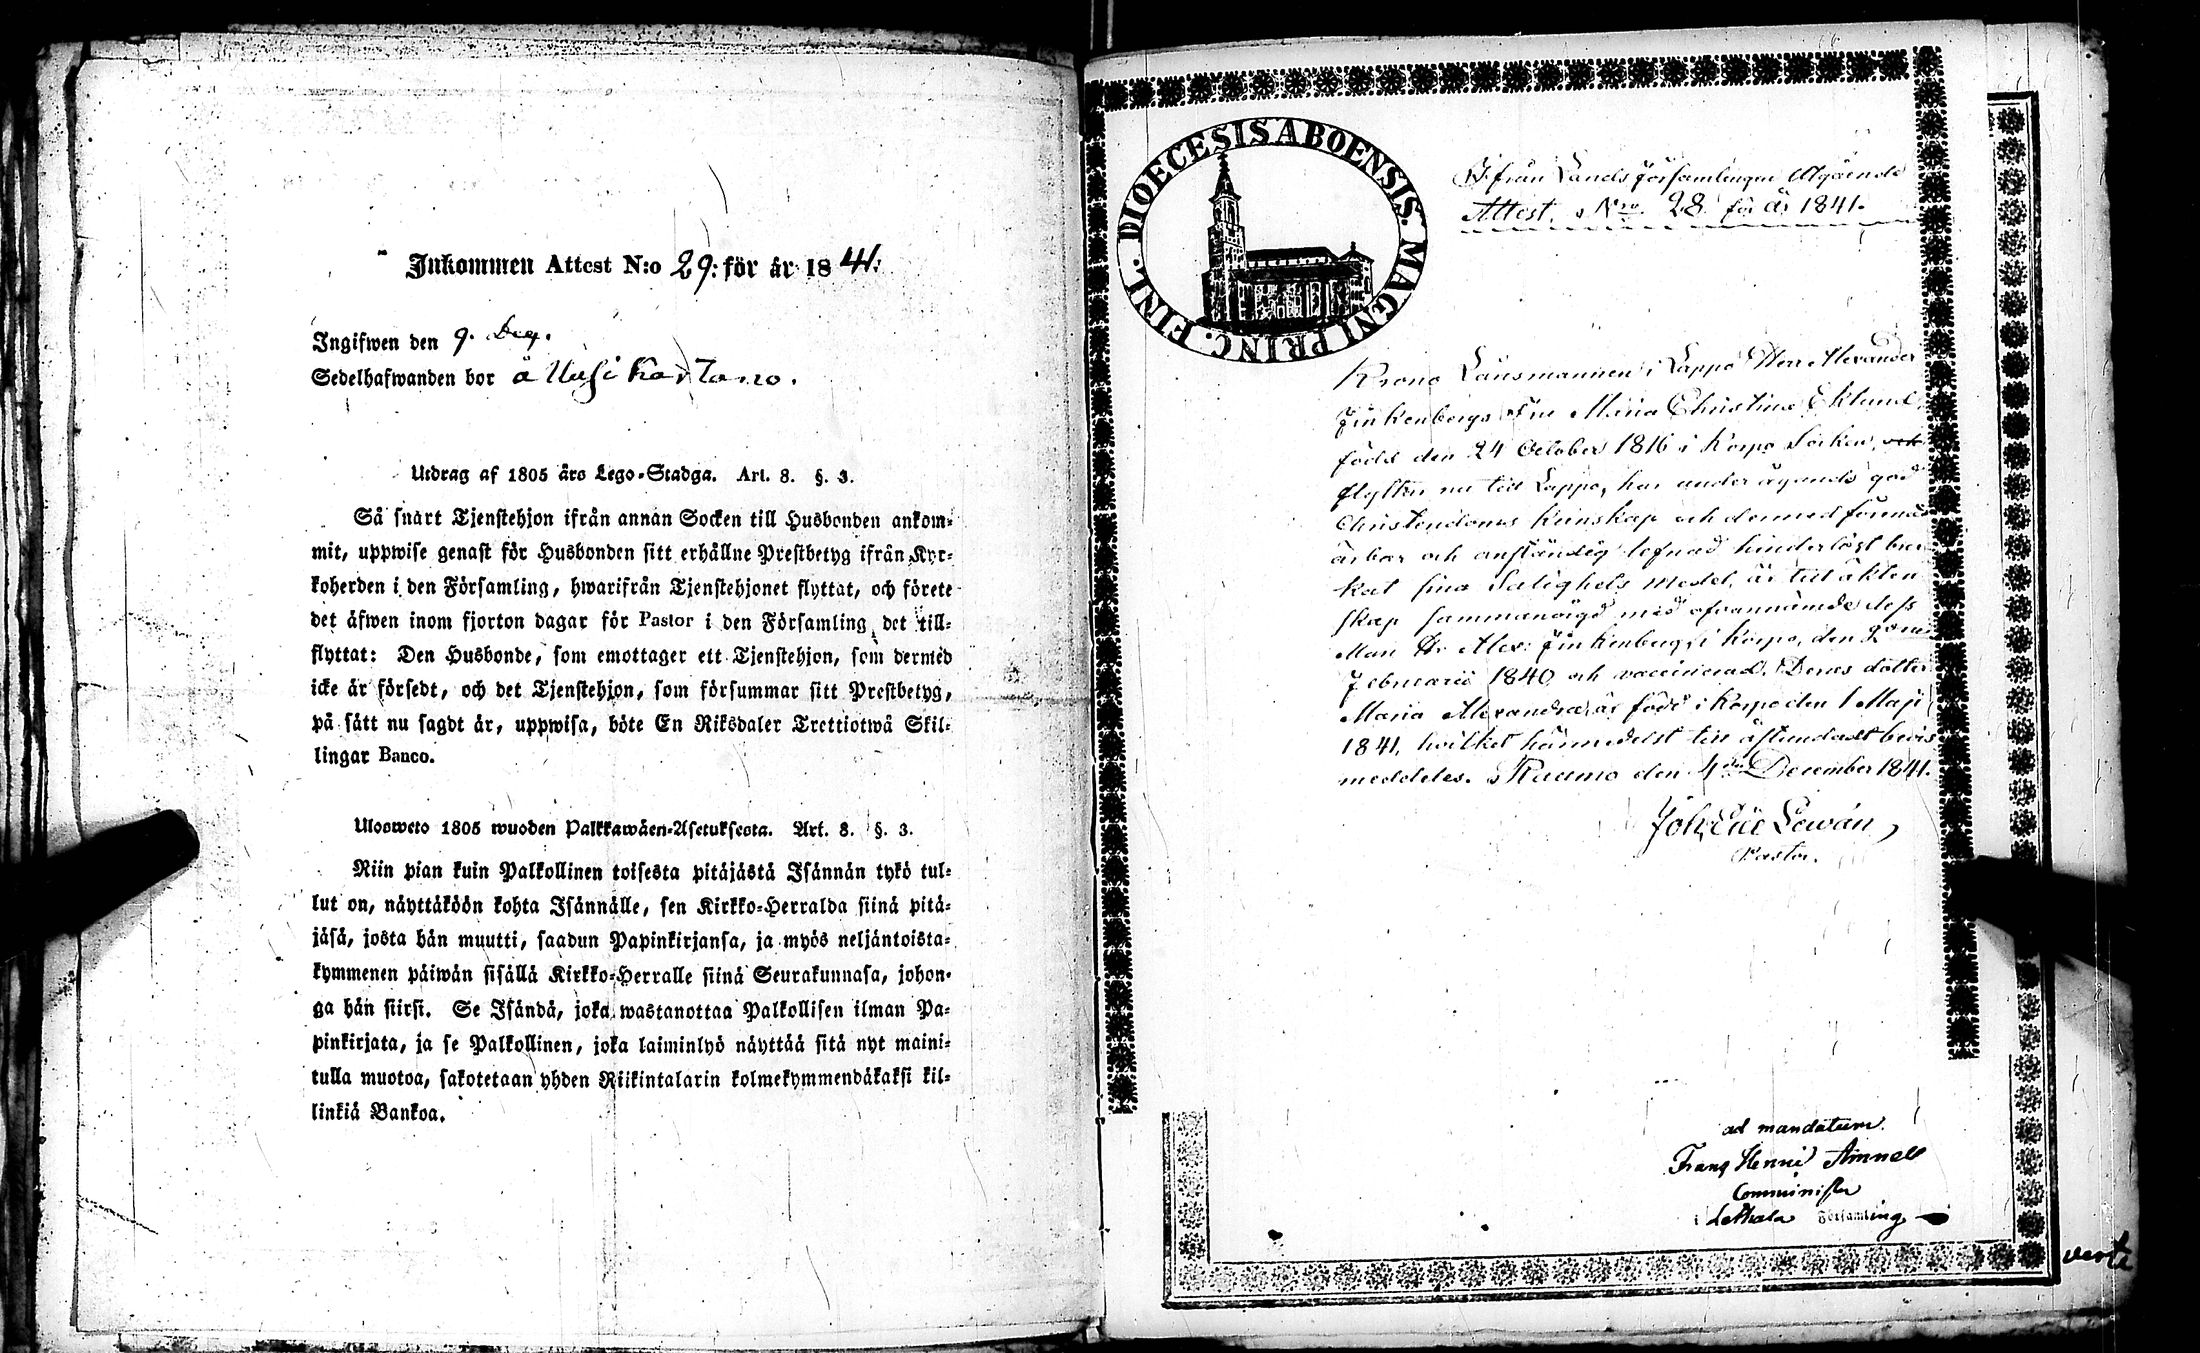 Inkommen Attest N:o 29: för år 1841:
Ingifwen den 9. Dec.
Sedelhafwanden bor å Uusikartano.
Utdrag af 1805 års Lego-Stadga. Art. 8. §. 3.
Så snart Tjenstehjon ifrån annan Socken till Husbonden ankom-
mit, uppwise genast för Husbonden sitt erhållne Prestbetyg ifrån Kyr-
koherden i den Församling, hwarifrån Tjenstehjonet flyttat, och förete
det äfwen inom fjorton dagar för Pastor i den Församling det till-
flyttat: Den Husbonde, som emottager ett Tjenstehjon, som dermed
icke är försedt, och det Tjenstehjon, som försummar sitt Prestbetyg,
på sätt nu sagdt är, uppwisa, böte En Riksdaler Trettiotwå Skil-
lingar Banco.
Ulosweto 1805 wuoden Palkkawäen-Asetuksesta. Art. 8. §. 3.
Niin pian kuin Palkollinen toisesta pitäjästä Isännän tykö tul-
lut on, näyttäköön kohta Isännälle, sen Kirkko-Herralda siinä pitä-
jäsä, josta hän muutti, saadun Papinkirjansa, ja myös neljäntoista-
kymmenen päiwän sisällä Kirkko-Herralle siinä Seurakunnasa, johon-
ga hän siirsi. Se Isändä, joka wastanottaa Palkollisen ilman Pa-
pinkirjata, ja se Palkollinen, joka laiminlyö näyttää sitä nyt maini-
tulla muotoa, sakotetaan yhden Riikintalarin kolmekymmendäkaksi kil-
linkiä Bankoa.
DIOECESIS ABOENSIS. MAGNI PRINC. FINL.
Ifrån Lands församlingen Utgående
Attest, Nro 28 för år 1841.
Krono Länsmannen i Lappo Herr Alexander
Finkenbergs Fru Maria Christina Eklund,
född den 24 October 1816 i Korpo Socken,
flyttar nu till Lappo, har under ägande god
Christendoms kunskap och dermed förenad
ärbar och anständig lefnad hinderlöst bru-
kat sina Salighets medel, är till äkten
skap sammanvigd med ofvannämde dess
Man Hr Alex: Finkenberg, i Korpo, den
Februarii 1840 och vaccinerad. Denes dotter
Maria Alexandra är född i Korpo den 1 Maji
1841, hvilket härmedelst till åstundadt bevis
meddeles. Raumo den 4de December 1841.
Joh. Eric Lewán,
Pastor.
ad mandatum
Franz Henric Aminell
Comminister
i Lethala Församling
verte